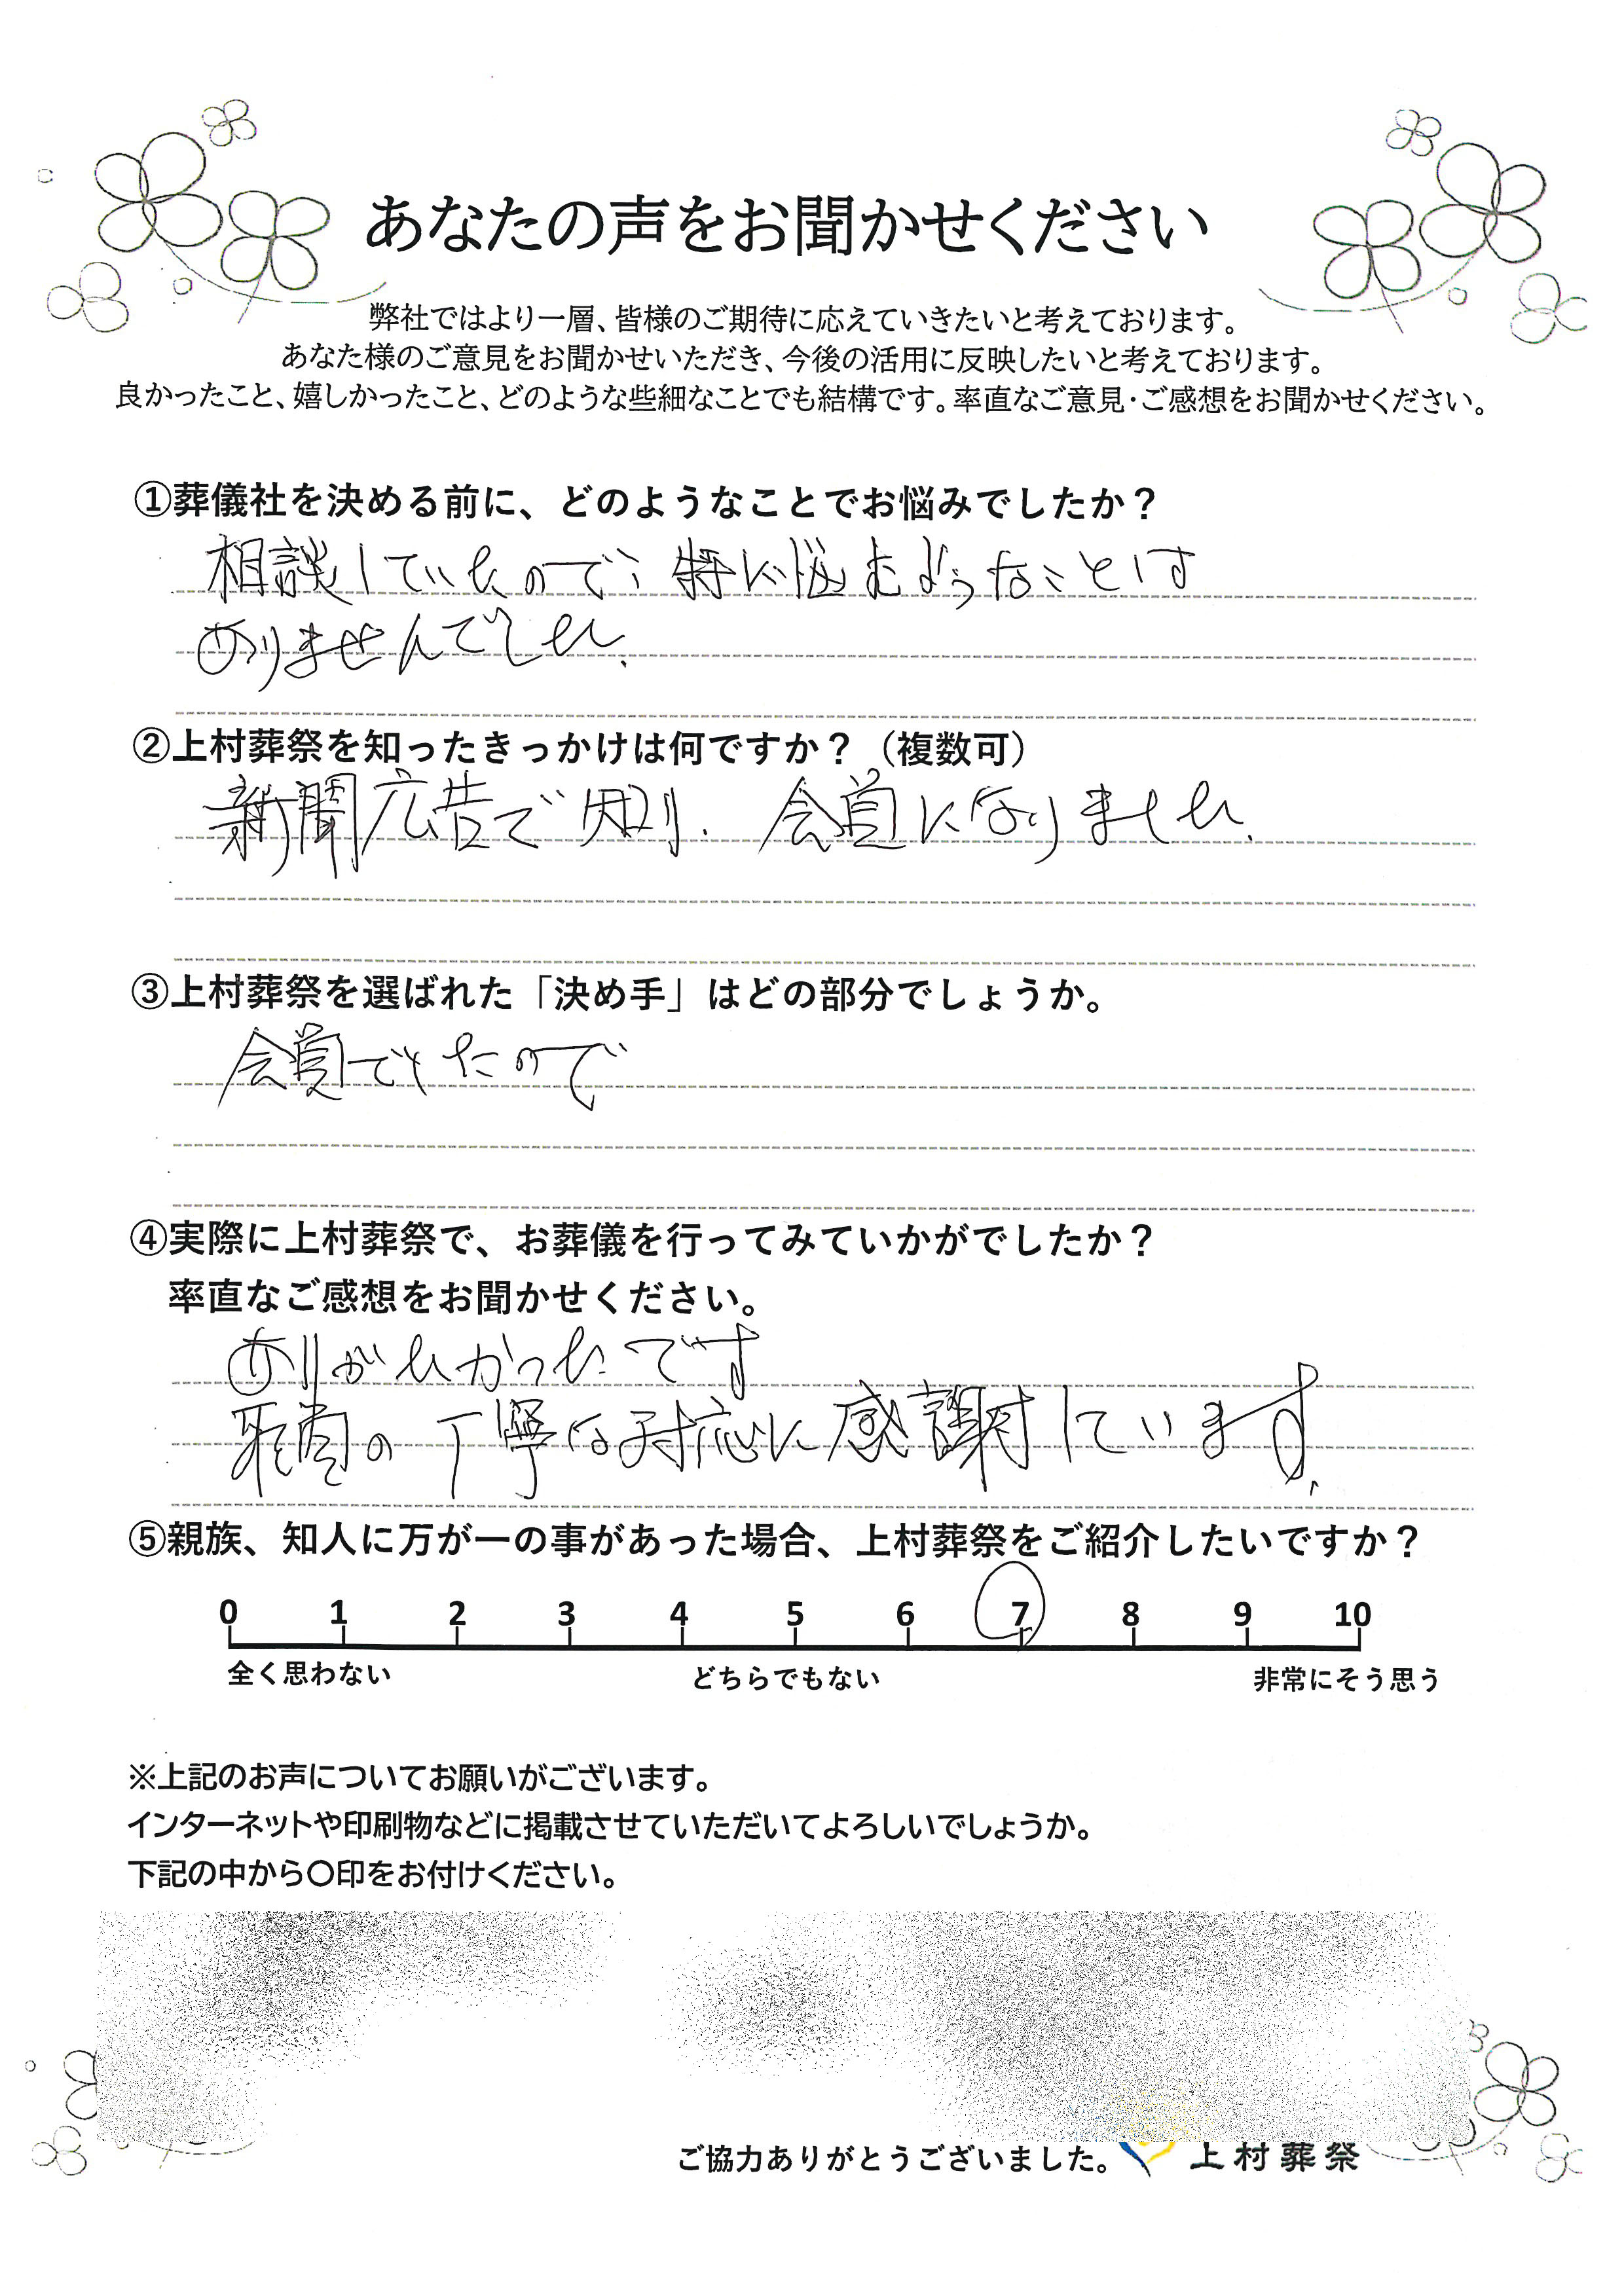 あなたの声をお聞かせください
弊社ではより一層、皆様のご期待に応えていきたいと考えております。
あなた様のご意見をお聞かせいただき、今後の活用に反映したいと考えております。
良かったこと、嬉しかったこと、どのような些細なことでも結構です。率直なご意見・ご感想をお聞かせください。
①葬儀社を決める前に、どのようなことでお悩みでしたか？
相談していたので、特に悩むようなことは
ありませんでした.
②上村葬祭を知ったきっかけは何ですか？（複数可）
新聞広告で知り. 会員になりました.
③上村葬祭を選ばれた「決め手」はどの部分でしょうか。
会員でしたので
④実際に上村葬祭で、お葬儀を行ってみていかがでしたか？
率直なご感想をお聞かせください。
ありがたかったです
の丁寧な対応に感謝しています.
⑤親族、知人に万が一の事があった場合、上村葬祭をご紹介したいですか？
0 1 2 3 4 5 6 7 8 9 10
全く思わない どちらでもない 非常にそう思う
※上記のお声についてお願いがございます。
インターネットや印刷物などに掲載させていただいてよろしいでしょうか。
下記の中から〇印をお付けください。
ご協力ありがとうございました。 上村葬祭